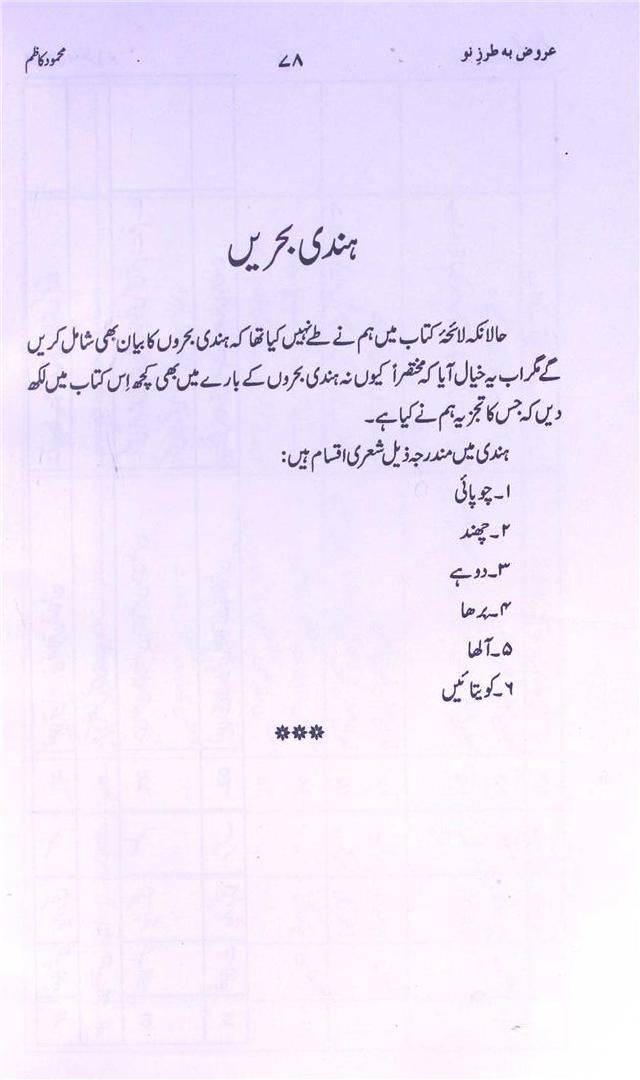 عروض بہ طرزِ نو
۷۸
محمود کاظم
ہندی بحریں
حالانکہ لائحۂ کتاب میں ہم نے طے نہیں کیا تھا کہ ہندی بحروں کا بیان بھی شامل کریں
گے مگر اب یہ خیال آیا کہ مختصراً کیوں نہ ہندی بحروں کے بارے میں بھی کچھ اِس کتاب میں لکھ
دیں کہ جس کا تجزیہ ہم نے کیا ہے۔
ہندی میں مندرجہ ذیل شعری اقسام ہیں:
۱۔چوپائی
۲۔چھند
۳۔دوہے
۴۔برھا
۵۔آلھا
۶۔کویتائیں
***